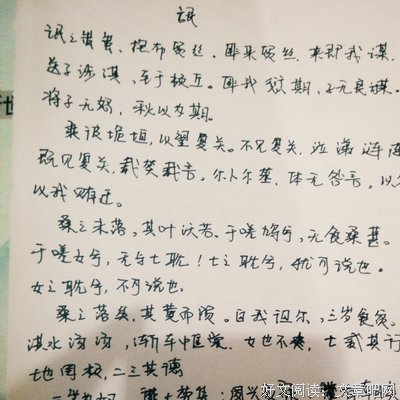 氓
氓之蚩蚩、抱布贸丝。匪来贸丝、来即我谋.
送子涉淇、至于顿丘。匪我愆期、子无良媒.
将子无怒，秋以为期。
乘彼垝垣，以望复关。不见复关，泣涕涟
既见复关，载笑载言。尔卜尔筮，体无咎言，以
以我贿迁。
桑之未落，其叶沃若。于嗟鸠兮，无食桑葚。
于嗟女兮，无与士耽！士之耽兮，犹可说也。
女之耽兮，不可说也
桑之落矣，其黄而陨。自我徂尔，三岁食贫。
淇水汤汤，渐车帷裳。女也不爽，士贰其行
也罔极，二三其德
好文阅读 文章吧网